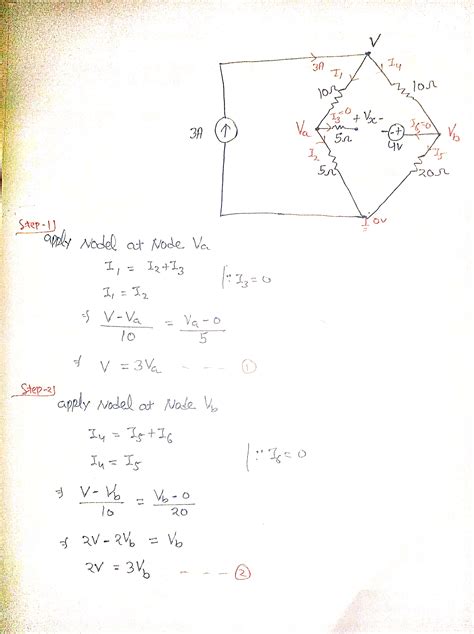 V
3A
I1
I4
10Ω
10Ω
3A
Va
I3=0
+ Vx -
5Ω
- +
4V
I6=0
Vb
I2
5Ω
I5
20Ω
0V
Step-1)
apply Nodel at Node Va
I1 = I2+I3
I1 = I2 |∵ I3 = 0
⇒ V-Va/10 = Va-0/5
⇒ V = 3Va ---- ①
Step-2)
apply Nodel at Node Vb
I4 = I5+I6
I4 = I5 |∵ I6 = 0
⇒ V-Vb/10 = Vb-0/20
⇒ 2V-2Vb = Vb
2V = 3Vb ---- ②